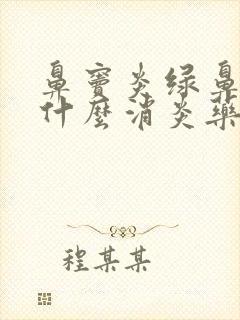 鼻窦炎绿鼻
什麼消炎藥
程某某